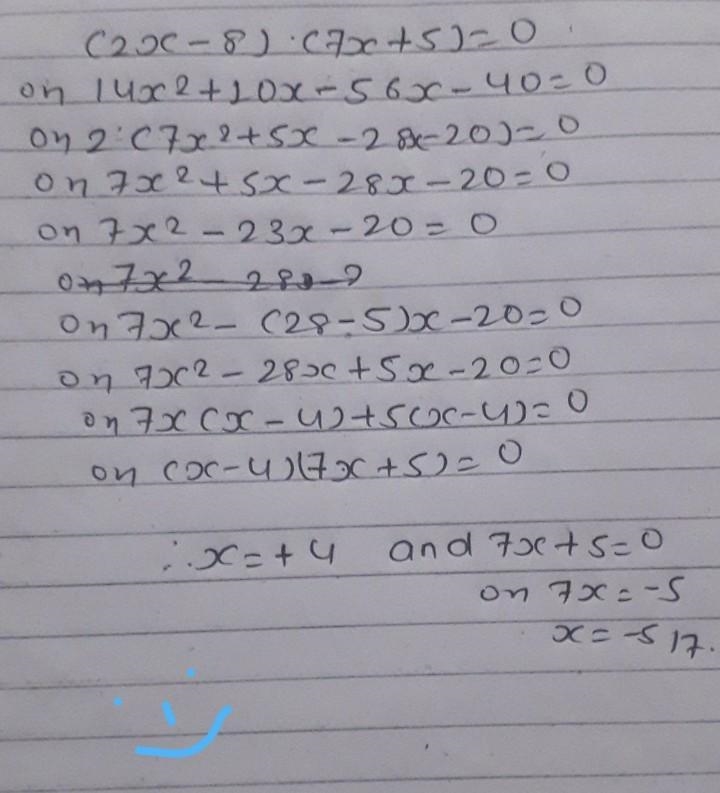 (2x-8)·(7x+5)=0
on 14x²+10x-56x-40=0
on 2·(7x²+5x-28x-20)=0
on 7x²+5x-28x-20=0
on 7x²-23x-20=0
on 7x²-28
on 7x²-(28-5)x-20=0
on 7x²-28x+5x-20=0
on 7x(x-4)+5(x-4)=0
on (x-4)(7x+5)=0
∴x=+4 and 7x+5=0
on 7x=-5
x=-5/7.